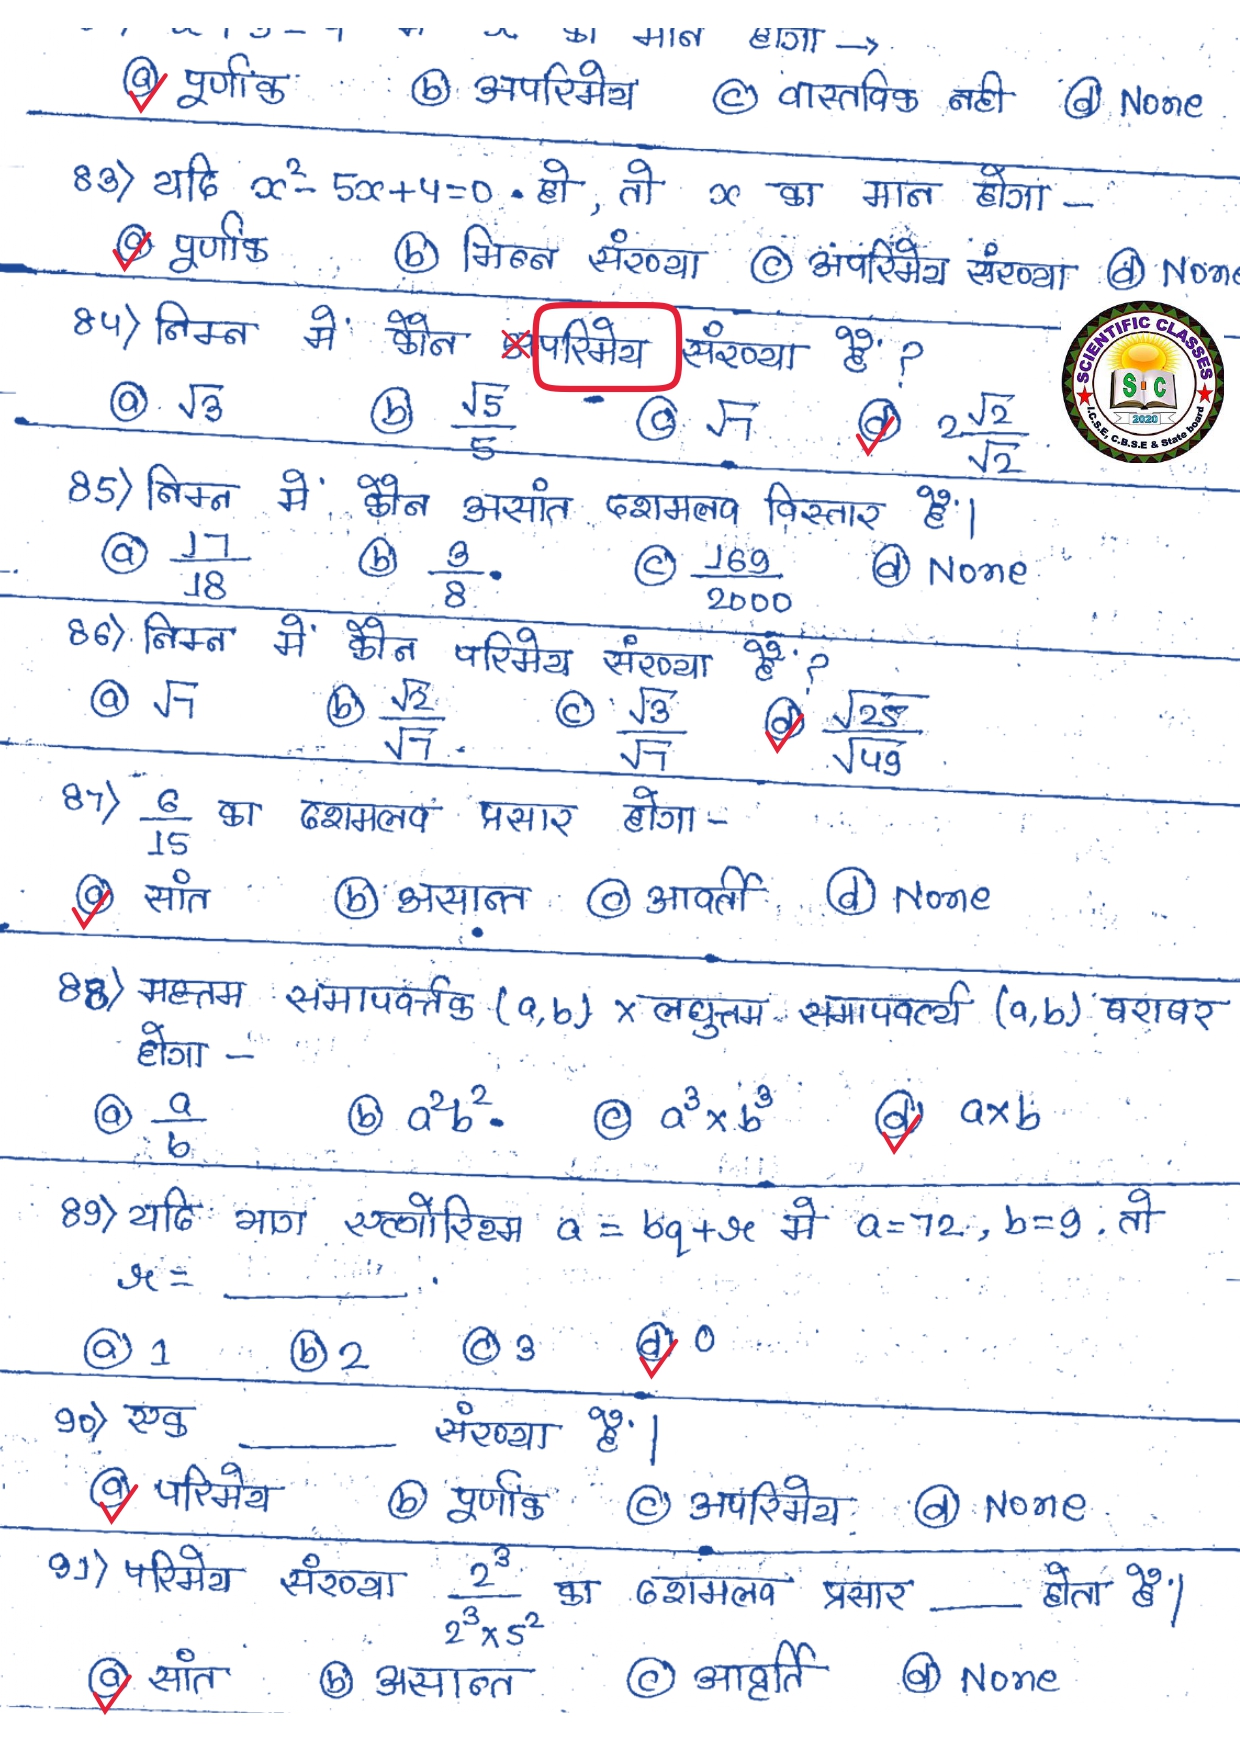 का मान होगा →
ⓐ पूर्णांक ⓑ अपरिमेय ⓒ वास्तविक नही ⓓ None
83) यदि x² - 5x + 4 = 0 . हो, तो x का मान होगा –
ⓐ पूर्णांक ⓑ भिन्न संख्या ⓒ अपरिमेय संख्या ⓓ None
84) निम्न में कौन अपरिमेय संख्या है ?
ⓐ √3 ⓑ √5/5 ⓒ √7 ⓓ 2√2/√2
SCIENTIFIC CLASSES
S·C
2020
I.C.S.E, C.B.S.E & State board
85) निम्न में कौन असांत दशमलव विस्तार है।
ⓐ 17/18 ⓑ 3/8 ⓒ 169/2000 ⓓ None
86) निम्न में कौन परिमेय संख्या है ?
ⓐ √7 ⓑ √2/√7 ⓒ √3/√7 ⓓ √25/√49
87) 6/15 का दशमलव प्रसार होगा –
ⓐ सांत ⓑ असान्त ⓒ आवर्ती ⓓ None
88) महत्तम समापवर्त्तक (a,b) × लघुत्तम समापवर्त्य (a,b) बराबर
होगा –
ⓐ a/b ⓑ a²b² ⓒ a³×b³ ⓓ a×b
89) यदि भाग एल्गोरिथ्म a = bq+r में a=72, b=9. तो
r = ______ .
ⓐ 1 ⓑ 2 ⓒ 3 ⓓ 0
90) एक ______ संख्या है।
ⓐ परिमेय ⓑ पूर्णांक ⓒ अपरिमेय ⓓ None
91) परिमेय संख्या 2³/2³×5² का दशमलव प्रसार ____ होता है।
ⓐ सांत ⓑ असान्त ⓒ आवृर्ति ⓓ None